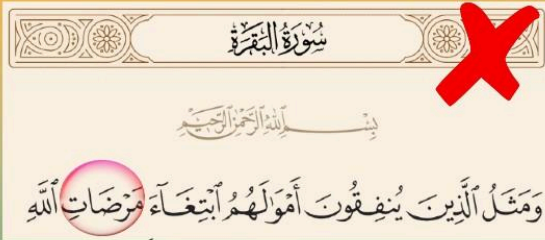 سُورَةُ الْبَقَرَةِ
بِسْمِ ٱللَّهِ ٱلرَّحْمَٰنِ ٱلرَّحِيمِ
وَمَثَلُ ٱلَّذِينَ يُنفِقُونَ أَمْوَٰلَهُمُ ٱبْتِغَآءَ مَرْضَاتِ ٱللَّهِ